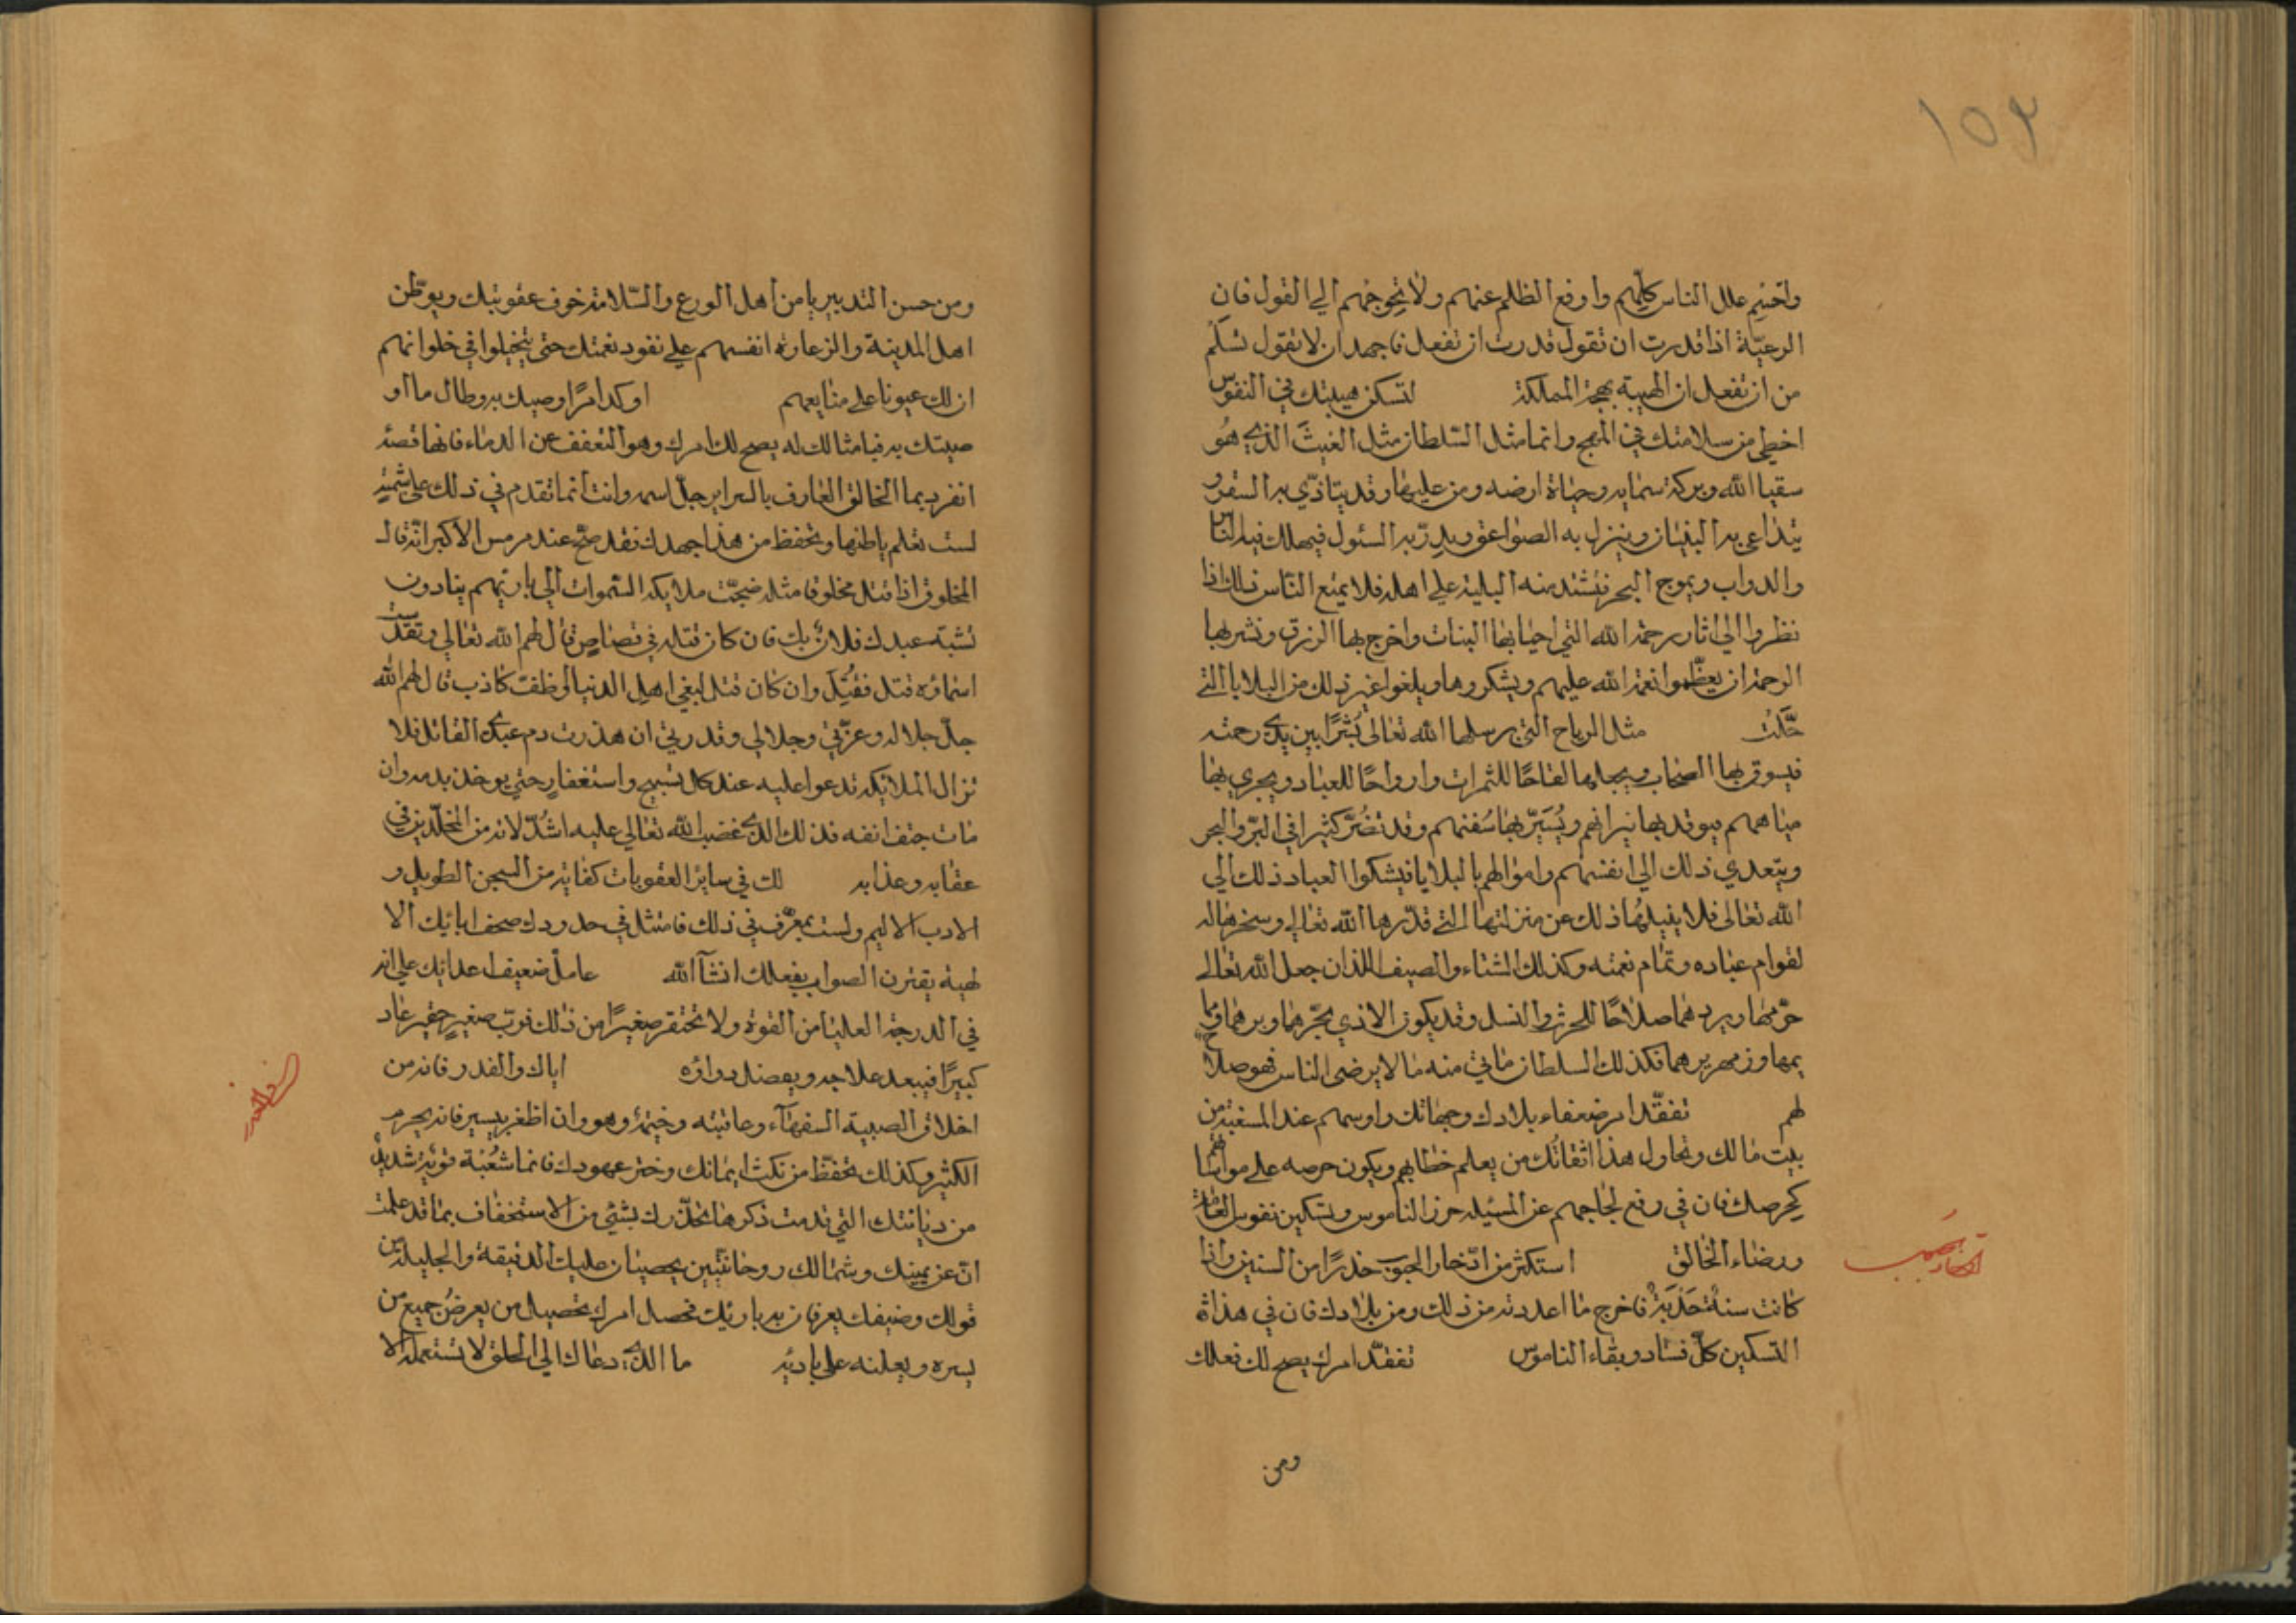 ١٥٣
واحسم علل الناس كلهم وارفع الظلم عنهم ولا تحوجهم الي القول فان
الرعيّة اذا قدرت ان تقول قدرت ان تفعل فاجهد ان لا تقول تسلم
من ان تفعل ان الهيبة بهجة المملكة لتسكن هيبتك في النفوس
اخطي من سلامتك في المهج وانما مثل السلطان مثل الغيث الذي هو
سقيا الله وبركة سمايه وحياة ارضه ومن عليها وقد يتاذّي به السفر و
يتداعي به البنيان وينزل به الصواعق ويدرّ به السئول فيهلك فيه الناس
والدواب ويموج البحر فيشتد منه البلية علي اهله فلا يمنع الناس ذلك اذا
نظروا الي اثار رحمة الله التي احيا بها النبات واخرج بها الرزق ونشر بها
الرحمة ان يعظّموا نعمة الله عليهم ويشكروها ويلغوا غير ذلك من البلايا التي
حلّت مثل الرياح التي يرسلها الله تعالى بُشرًا بين يدي رحمته
فيسوق بها السحاب ويجعلها لقاحًا للثمرات وارواحًا للعباد ويجري بها
مياههم ويوقد بها نيرانهم ويُسَيّر بها سُفنهم وقد تضُرّ كثيرا في البرّ والبحر
ويتعدي ذلك الي انفسهم واموالهم بالبلايا فيشكوا العباد ذلك الي
الله تعالى فلا يزيلها ذلك عن منزلتها التي قدّرها الله تعالي وسخرها له
لقوام عباده وتمام نعمته وكذلك الشتاء والصيف اللذان جعل الله تعالى
حرّهما وبردهما صلاحًا للحرث والنسل وقد يكون الاذي بحرّهما وبردهما و
يمها وزمهريرهما فكذلك السلطان ماتي منه ما لا يرضى الناس فهو صلاح
لهم تفقّد امر ضعفاء بلادك وجهاتك واوسهم عند المسغبة من
بيت مالك وتحاول هذا اثقاتك من يعلم خطابهم ويكون حرصه علي مواساتهم
كحرصك فان في رفع لجاجهم عن المسئيلة حرز الناموس وتسكين نفوس العامة
ورضاء الخالق استكثر من ادّخار الحبوب حذرًا من السنين واذا
كانت سنةٌ جَدْبَةٌ فاخرج ما اعددته من ذلك ومن بلادك فان في هذا
التسكين كلّ فساد وبقاء الناموس تفقّد امرك يصح لك فعلك
ومن
ومن حسن التدبير يامن اهل الورع والسّلامة خوف عقوبتك ويوطّن
اهل المدينة والزعارة انفسهم علي نفود نقمتك حتى يتخيلوا في خلواتهم
ان لك عيونا علي صنايعهم اوكد امرًا اوصيك به وطال ما او
صيتك به فيا مثالك له يصح لك امرك وهو التعفف عن الدماء فانها قصة
انفرد بها الخالق العارف بالسراير جلّ اسمه وانت انما تقدم في ذلك علي شبهة
لست تعلم باطنها وتحفظ من هذا جهدك فقد صحّ عند هرمس الاكبر انّه قال
المخلوق اذا قتل مخلوقا مثله ضجّت ملايكة السّموات الي باريهم ينادون
تشبّه عبدك فلان بك فان كان قتله في قصاص قال لهم الله تعالي وتقدست
اسماؤه قتل فقُتِل وان كان قتل لبغي اهل الدنيا او ظفت كاذب قال لهم الله
جلّ جلاله وعزّتي وجلالي وقدرتي ان هذرت دم عبدي القاتل فلا
تزال الملائكة تدعوا عليه عند كل تسبيح واستغفار حتي يوخذ بدمه وان
مات حتف انفه فذلك الذي غضب الله تعالي عليه اشدّ لانه من المخلّدين في
عقابه وعذابه لك في ساير العقوبات كفاية من السجن الطويل و
الادب الاليم ولست بمعرّف في ذلك فامتثل في حدودك صحف ابائك الا
لهية يقترن الصواب بفعلك انشآ الله عامل ضعيف اعدائك علي انه
في الدرجة العليا من القوة ولا تحتقر صغيرًا من ذلك فربّ صغير حقير عاد
كبيرًا فيبعد علاجه ويعضل دواؤه اياك والغدر فانه من
اخلاق الصبية السفهآء وعاقبته وخيمة وهو وان اظفر بيسير فانه يحرم
الكثير وكذلك تحفّظ من نكث ايمانك وختر عهودك فانما شُعْبَة قويّة شديدة
من ديانتك التي قدمت ذكرها فحذّرك بشئي من الاستخفاف بما قد علمت
انّ عن يمينك وشمالك روحانيّين يحصيان عليك الدقيقة والجليلة من
قولك وضيفك يعرفان به باريك فحصل امرك تحصيل من يعرض جميع من
يسره ويعلنه علي باديه ما الذي دعاك الي الحلف لا تستعمله الا